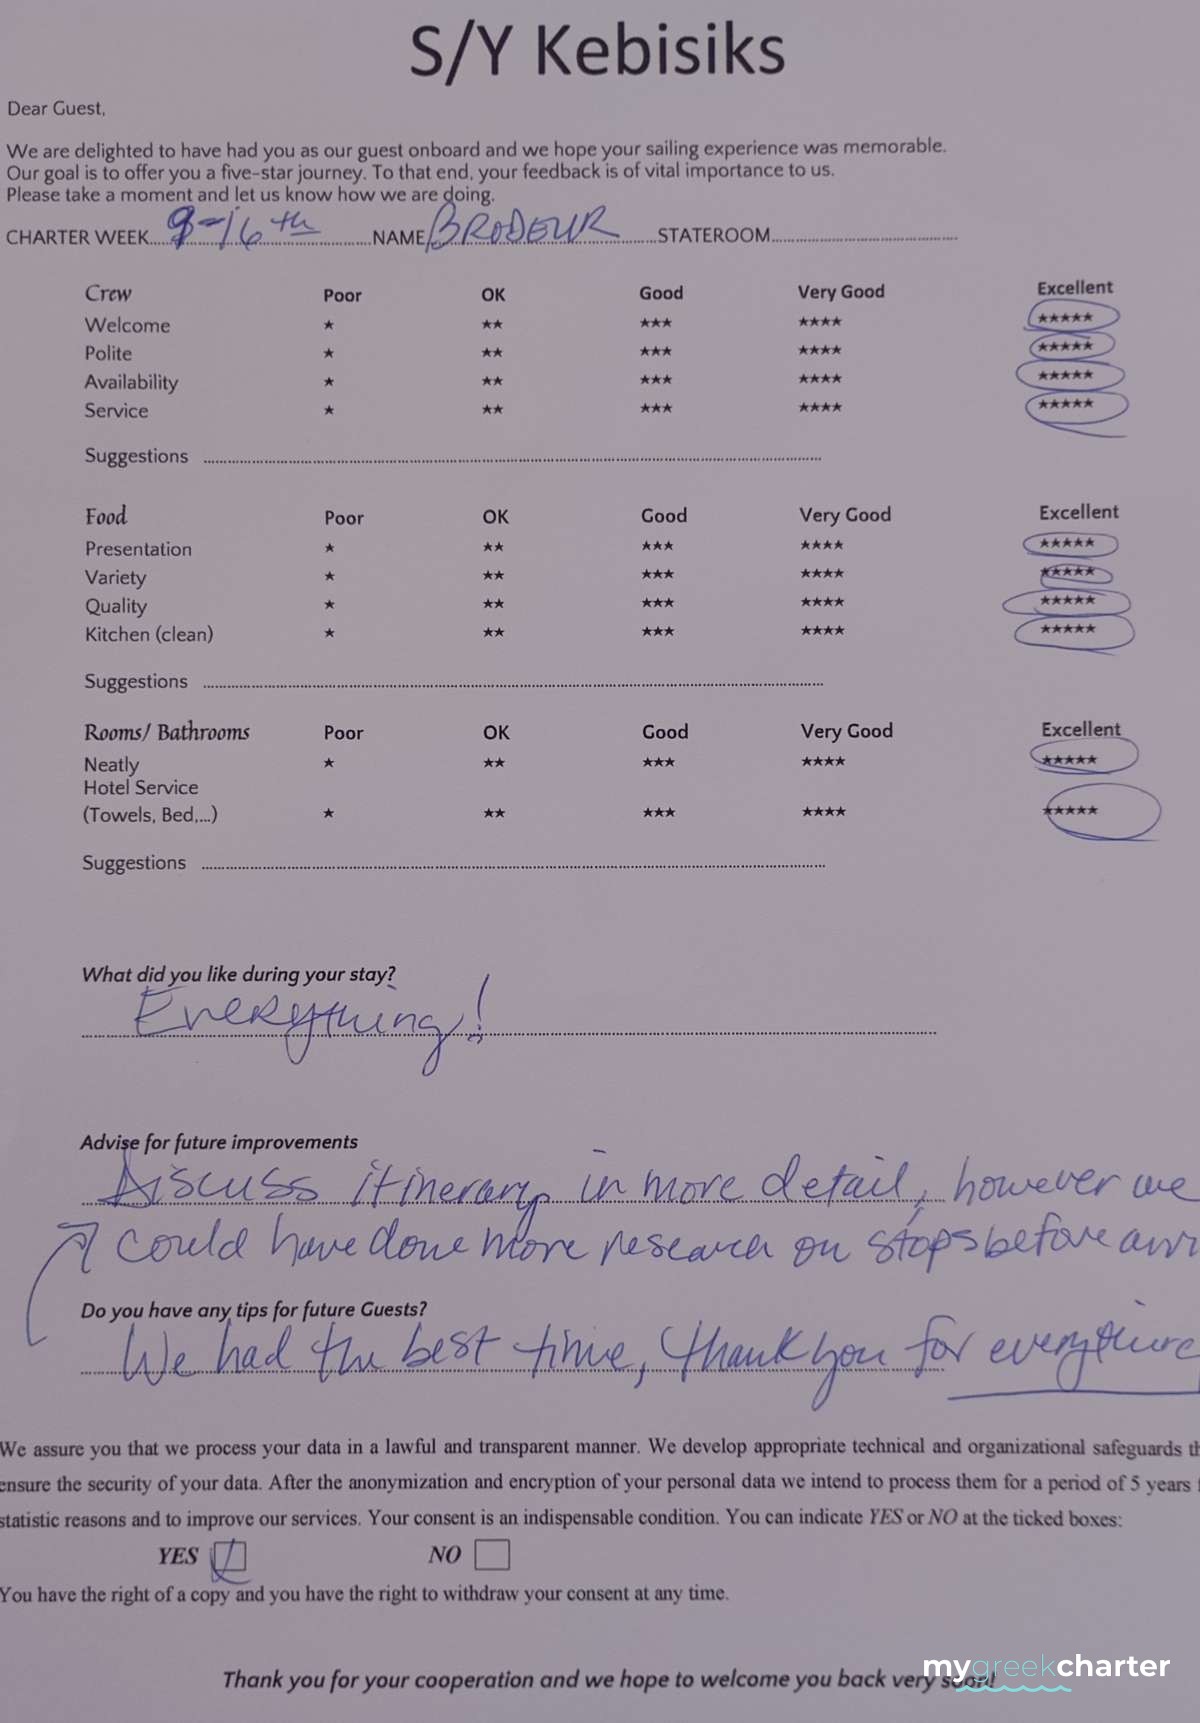 S/Y Kebisiks
Dear Guest,
We are delighted to have had you as our guest onboard and we hope your sailing experience was memorable.
Our goal is to offer you a five-star journey. To that end, your feedback is of vital importance to us.
Please take a moment and let us know how we are doing.
CHARTER WEEK 9-16th NAME BRODEUR STATEROOM
Crew Poor OK Good Very Good Excellent
Welcome ★ ★★ ★★★ ★★★★ ★★★★★
Polite ★ ★★ ★★★ ★★★★ ★★★★★
Availability ★ ★★ ★★★ ★★★★ ★★★★★
Service ★ ★★ ★★★ ★★★★ ★★★★★
Suggestions
Food Poor OK Good Very Good Excellent
Presentation ★ ★★ ★★★ ★★★★ ★★★★★
Variety ★ ★★ ★★★ ★★★★ ★★★★★
Quality ★ ★★ ★★★ ★★★★ ★★★★★
Kitchen (clean) ★ ★★ ★★★ ★★★★ ★★★★★
Suggestions
Rooms/ Bathrooms Poor OK Good Very Good Excellent
Neatly ★ ★★ ★★★ ★★★★ ★★★★★
Hotel Service
(Towels, Bed,...) ★ ★★ ★★★ ★★★★ ★★★★★
Suggestions
What did you like during your stay?
Everything!
Advise for future improvements
Discuss itinerary in more detail, however we
could have done more research on stops before
Do you have any tips for future Guests?
We had the best time, thank you for everything
We assure you that we process your data in a lawful and transparent manner. We develop appropriate technical and organizational safeguards
ensure the security of your data. After the anonymization and encryption of your personal data we intend to process them for a period of 5 years
statistic reasons and to improve our services. Your consent is an indispensable condition. You can indicate YES or NO at the ticked boxes:
YES NO
You have the right of a copy and you have the right to withdraw your consent at any time.
Thank you for your cooperation and we hope to welcome you back very soon!
mygreekcharter